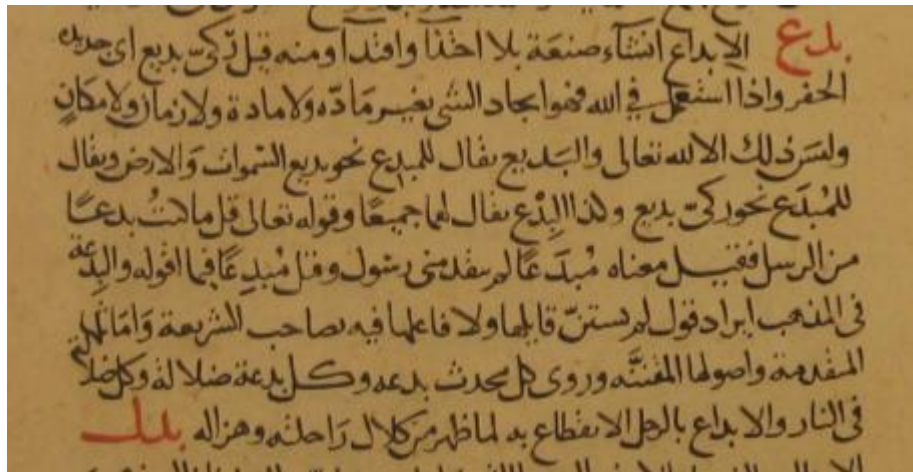 بدع الإبداع إنشاء صنعة بلا احتذا واقتدا ومنه قيل ركيّ بديع اي جديد
الحفر واذا استعمل في الله فهو ايجاد الشي بغير مَادّه ولا مادة ولا زمان ولا مكان
وليس ذلك الا لله تعالى والبَديع يقال للمبدِع نحو بديع السموات وَالارض ويقال
للمُبدَع نحو ركيّ بديع وكذا البِدْع يقال لهما جميعًا وقوله تعالى قل ما كنتُ بدعًا
من الرسل فقيل معناه مُبدَعًا لم يتقدمنى رسول وقيل مُبدِعًا فيما اقوله والبِدعة
في المذهب ايراد قول لم يستنّ قايلها ولا فاعلها فيه بصاحب الشريعة وَاماثلها
المتقدمة واصولها المقننَّه وروى كل محدث بدعه وكل بدعة ضلالة وكل ضلالة
في النار والابداع بالرجل الانقطاع به لما ظهر من كلال رَاحلته وهزاله بدل